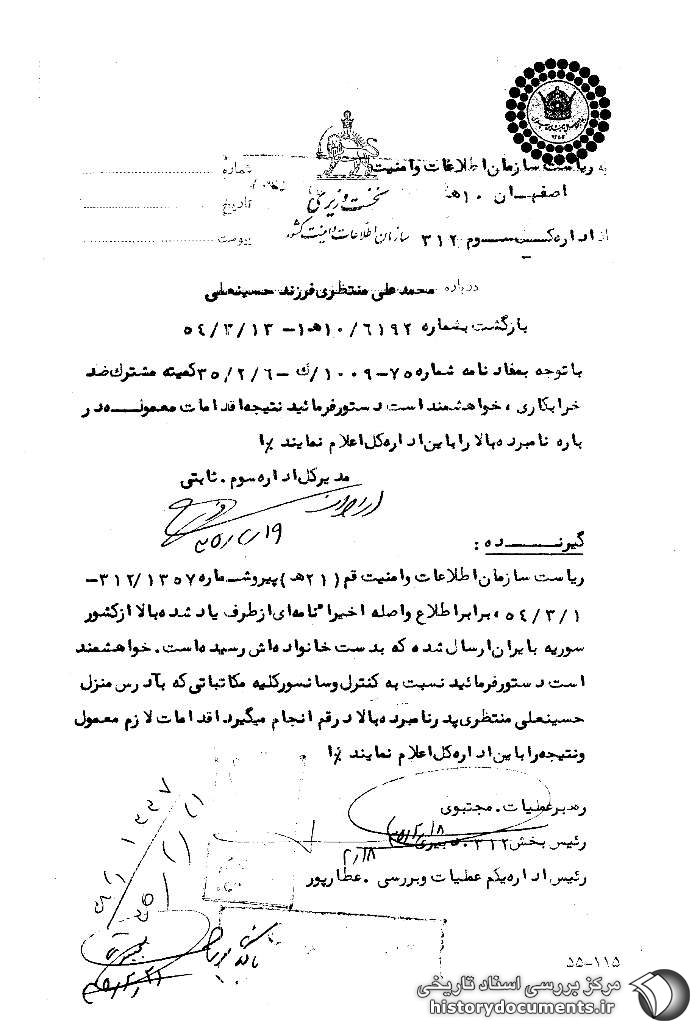 به ریاست سازمان اطلاعات وامنیت
اصفهان ۱۰هـ
از اداره کل سوم ۳۱۲
نخست وزیری
سازمان اطلاعات و امنیت کشور
شماره
تاریخ
پیوست
درباره محمد علی منتظری فرزند حسینعلی
بازگشت بشماره ۱۰/۶۱۹۲هـ۱- ۵۴/۳/۱۳
با توجه بمفاد نامه شماره ۷۵-۱۰۰۹/ک -۳۵/۲/۶ کمیته مشترک ضد
خرابکاری ، خواهشمند است دستور فرمائید نتیجه اقدامات معموله در
باره نامبرده بالا را باین اداره کل اعلام نمایند
مدیرکل اداره سوم . ثابتی
گیرنده :
ریاست سازمان اطلاعات وامنیت قم (۲۱هـ) پیرو شماره ۳۱۲/۱۳۵۷-
۵۴/۳/۱ ، برابر اطلاع واصله اخیرا" نامه ای از طرف یاد شده بالا از کشور
سوریه بایران ارسال شده که بدست خانواده اش رسیده است . خواهشمند
است دستور فرمائید نسبت به کنترل وسانسور کلیه مکاتباتی که بآدرس منزل
حسینعلی منتظری پدر نامبرده بالا در قم انجام میگیرد اقدامات لازم معمول
ونتیجه را باین اداره کل اعلام نمایند
رهبر عملیات . مجتبوی
رئیس بخش ۳۱۲
۲/۱۸
رئیس اداره یکم عملیات وبررسی . عطارپور
۵۵-۱۱۵
مرکز بررسی اسناد تاریخی
historydocuments.ir